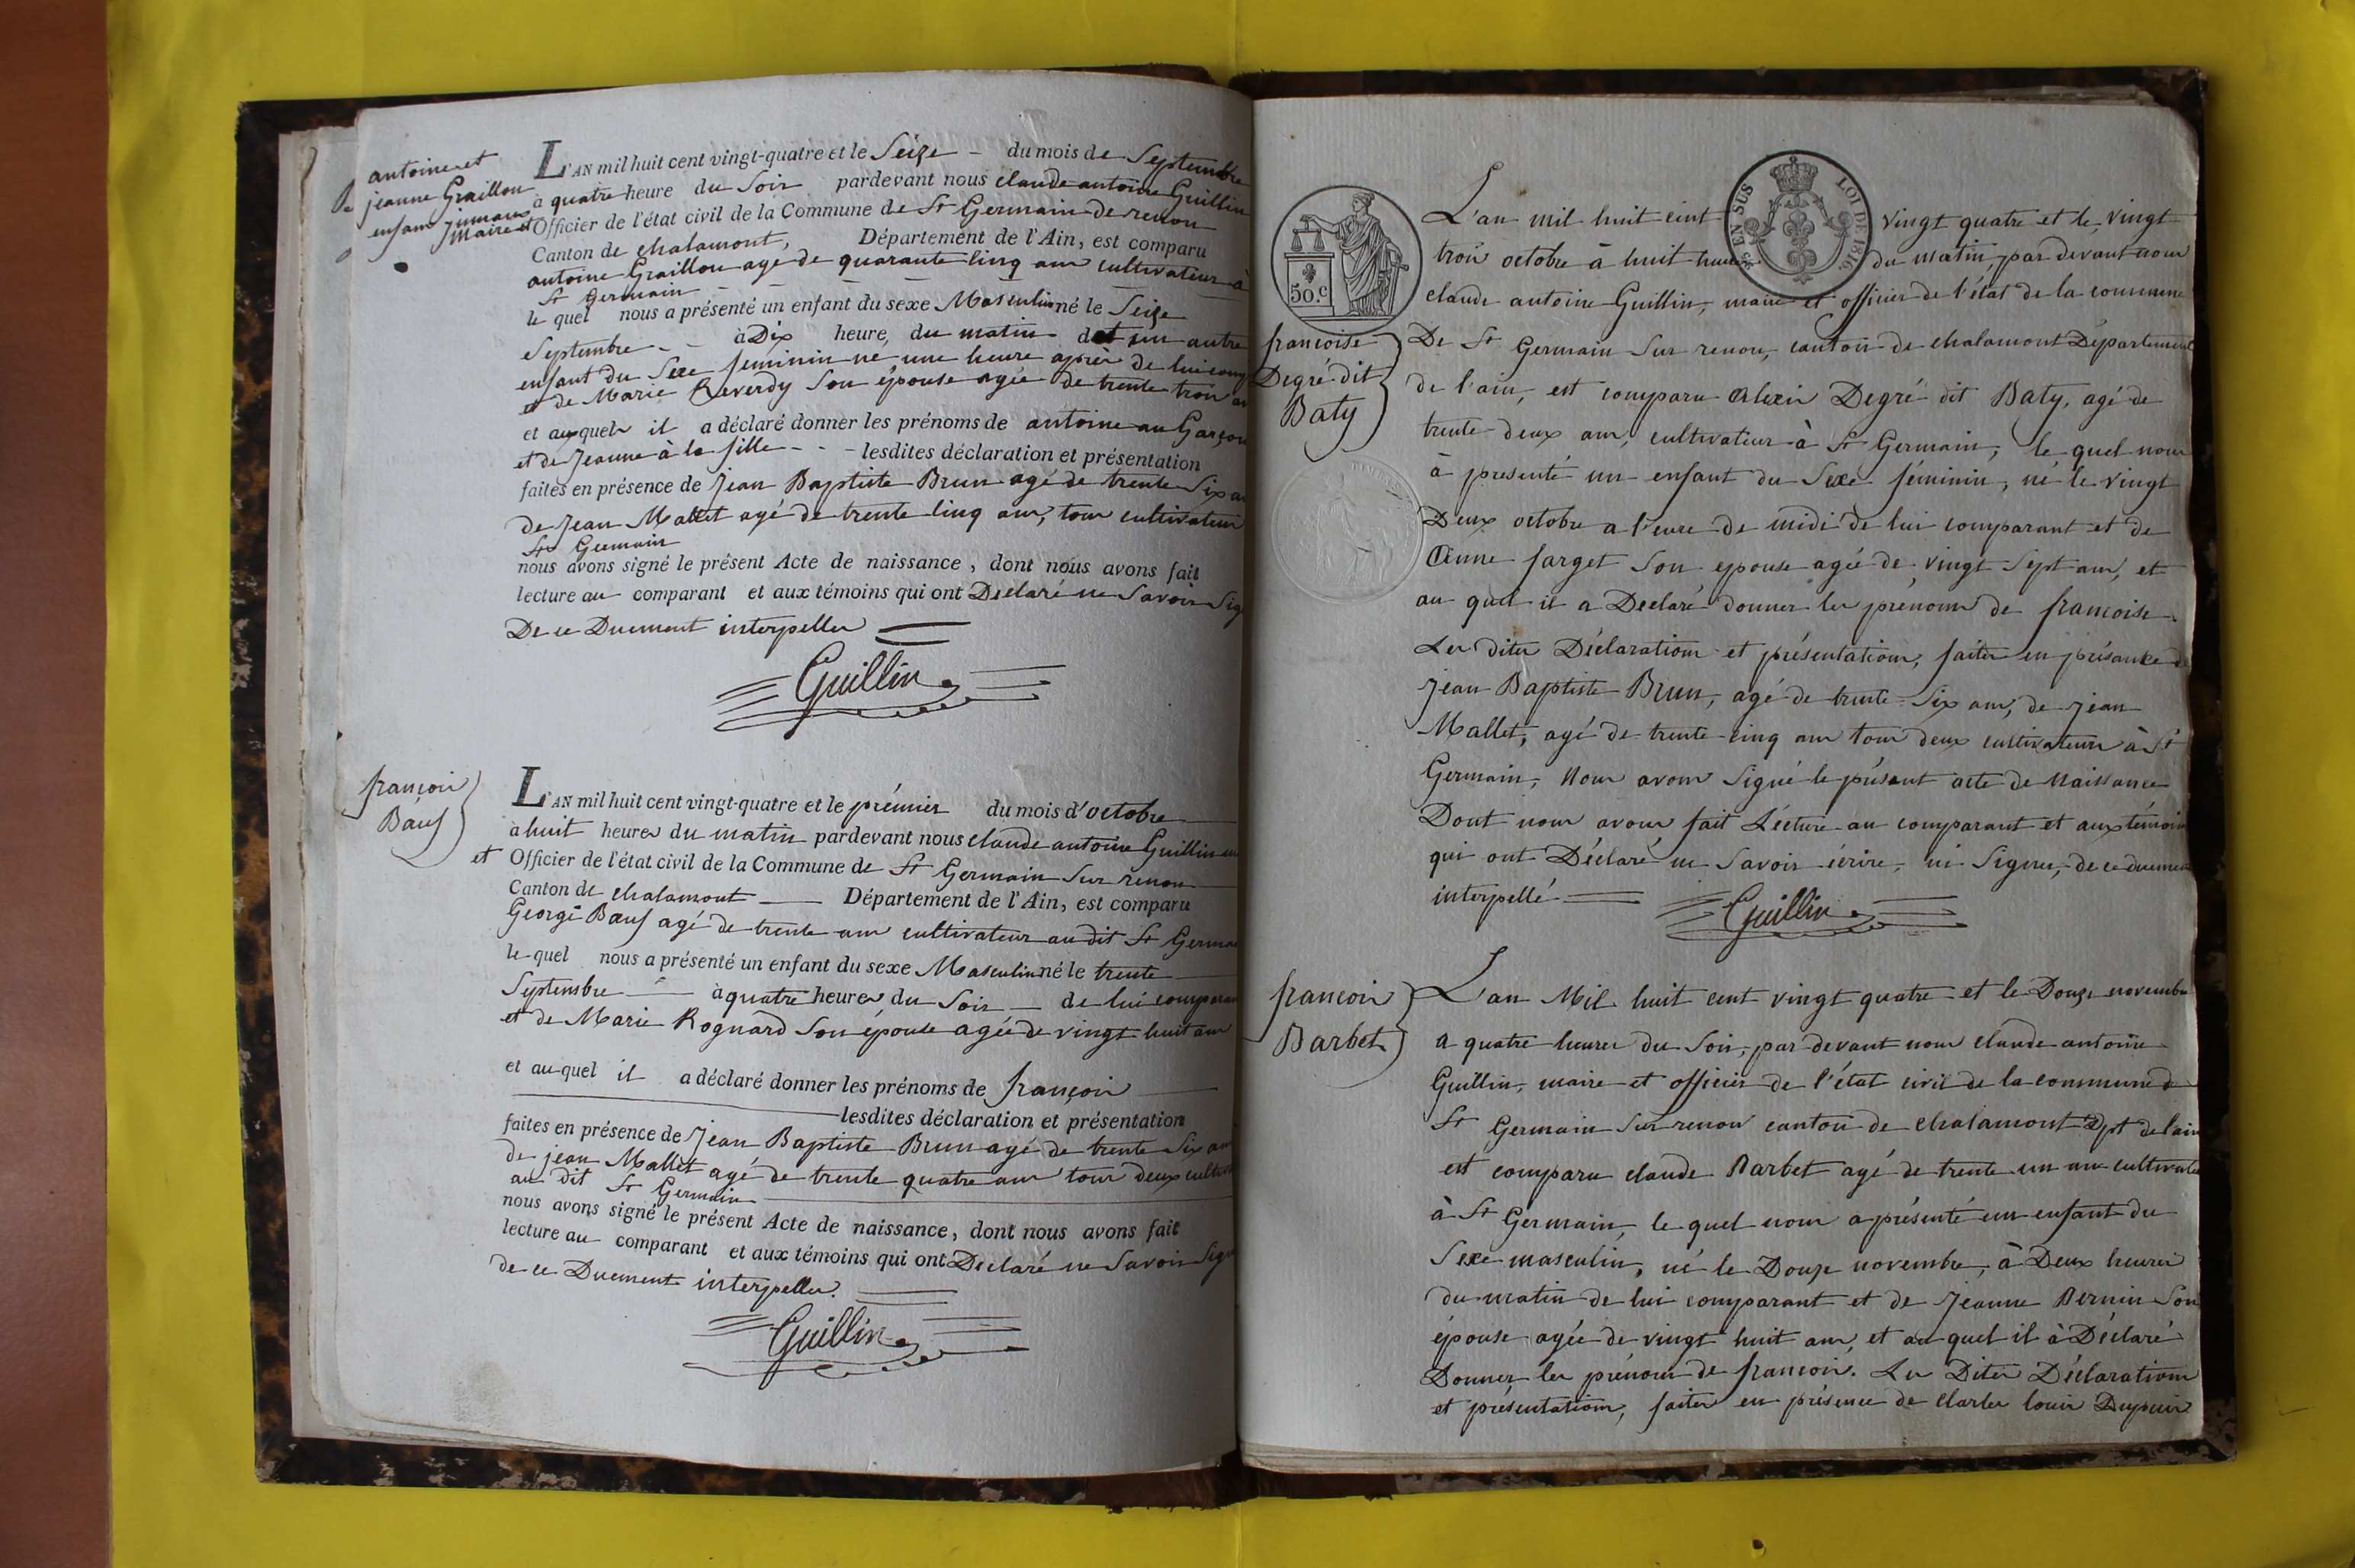 antoine et
jeanne Graillon
enfans jumaux
L'AN mil huit cent vingt-quatre et le Seize - du mois de Septembre
à quatre heure du Soir pardevant nous claude antoine Guillin
maire et Officier de l'état civil de la Commune de St Germain de renon
Canton de chalamont, Département de l'Ain, est comparu
antoine Graillon agé de quarante cinq ans cultivateur à
St Germain
le quel nous a présenté un enfant du sexe Masculin né le Seize
Septembre - - à Dix heure, du matin et un autre
enfant du Sexe féminin né une heure après de lui comp
et de Marie Reverdy Son épouse agée de trente trois an
et auxquels il a déclaré donner les prénoms de antoine au Garçon
et de Jeanne à la fille - - - lesdites déclaration et présentation
faites en présence de Jean Baptiste Brun agé de trente Six an
de Jean Mallet agé de trente cinq ans, tous cultivateurs
St Germain
nous avons signé le présent Acte de naissance, dont nous avons fait
lecture au comparant et aux témoins qui ont Déclaré ne Savoir Sig
De ce Duement interpellés
Guillin
françois
Bœuf
L'AN mil huit cent vingt-quatre et le prémier du mois d'octobre
à huit heures du matin pardevant nous claude antoine Guillin
et Officier de l'état civil de la Commune de St Germain Sur renon
Canton de chalamont Département de l'Ain, est comparu
George Bœuf agé de trente ans cultivateur au dit St Germa
le quel nous a présenté un enfant du sexe Masculin né le trente
Septembre à quatre heures du Soir de lui compara
et de Marie Rognard Son épouse agée de vingt huit ans
et au quel il a déclaré donner les prénoms de françois
lesdites déclaration et présentation
faites en présence de Jean Baptiste Brun agé de trente Six an
de jean Mallet agé de trente quatre ans tous deux cultiva
au dit St Germain
nous avons signé le présent Acte de naissance, dont nous avons fait
lecture au comparant et aux témoins qui ont Déclaré ne Savoir Signe
de ce Duement interpellés.
Guillin
50.c
EN SUS LOI DE 1816.
françoise
Degré dit
Baty
L'an mil huit cent vingt quatre et le vingt
trois octobre à huit heures du matin, par devant nous
claude antoine Guillin, maire et officier de l'état de la commune
De St Germain Sur renon, canton de chalamont Département
de l'ain, est comparu Alexis Degré dit Baty, agé de
trente deux ans, cultivateur à St Germain, le quel nous
à presenté un enfant du Sexe féminin, né le vingt
Deux octobre a l'eure de midi de lui comparant et de
Anne farget Son epouse agée de vingt Sept ans, et
au quel il a Declaré donner les prénoms de francoise
Les dites Déclarations et présentations, faites en présance de
Jean Baptiste Brun, agé de trente Six ans, de jean
Mallet, agé de trente cinq ans tous deux cultivateurs à St
Germain, Nous avons Signé le présent acte de Naissance
Dont nous avons fait Lécture au comparant et aux témoins
qui ont Déclaré ne Savoir écrire, ni Signer, de ce duement
interpellé
Guillin
francois
Barbet
L'an Mil huit cent vingt quatre et le Douze novembre
a quatre heures du Soir, par devant nous claude antoine
Guillin, maire et officier de l'état civil de la commune de
St Germain Sur renon canton de chalamont Dpt de l'ain
est comparu claude Barbet agé de trente un ans cultivate
à St Germain, le quel nous a présenté un enfant du
Sexe masculin, né le Douze novembre, à Deux heures
du matin de lui comparant et de Jeanne Bernin Son
épouse agée de vingt huit ans, et au quel il à Déclaré
Donner les prénoms de françois. Les Dites Déclarations
et présentations, faites en présence de Charles louis Dupuis